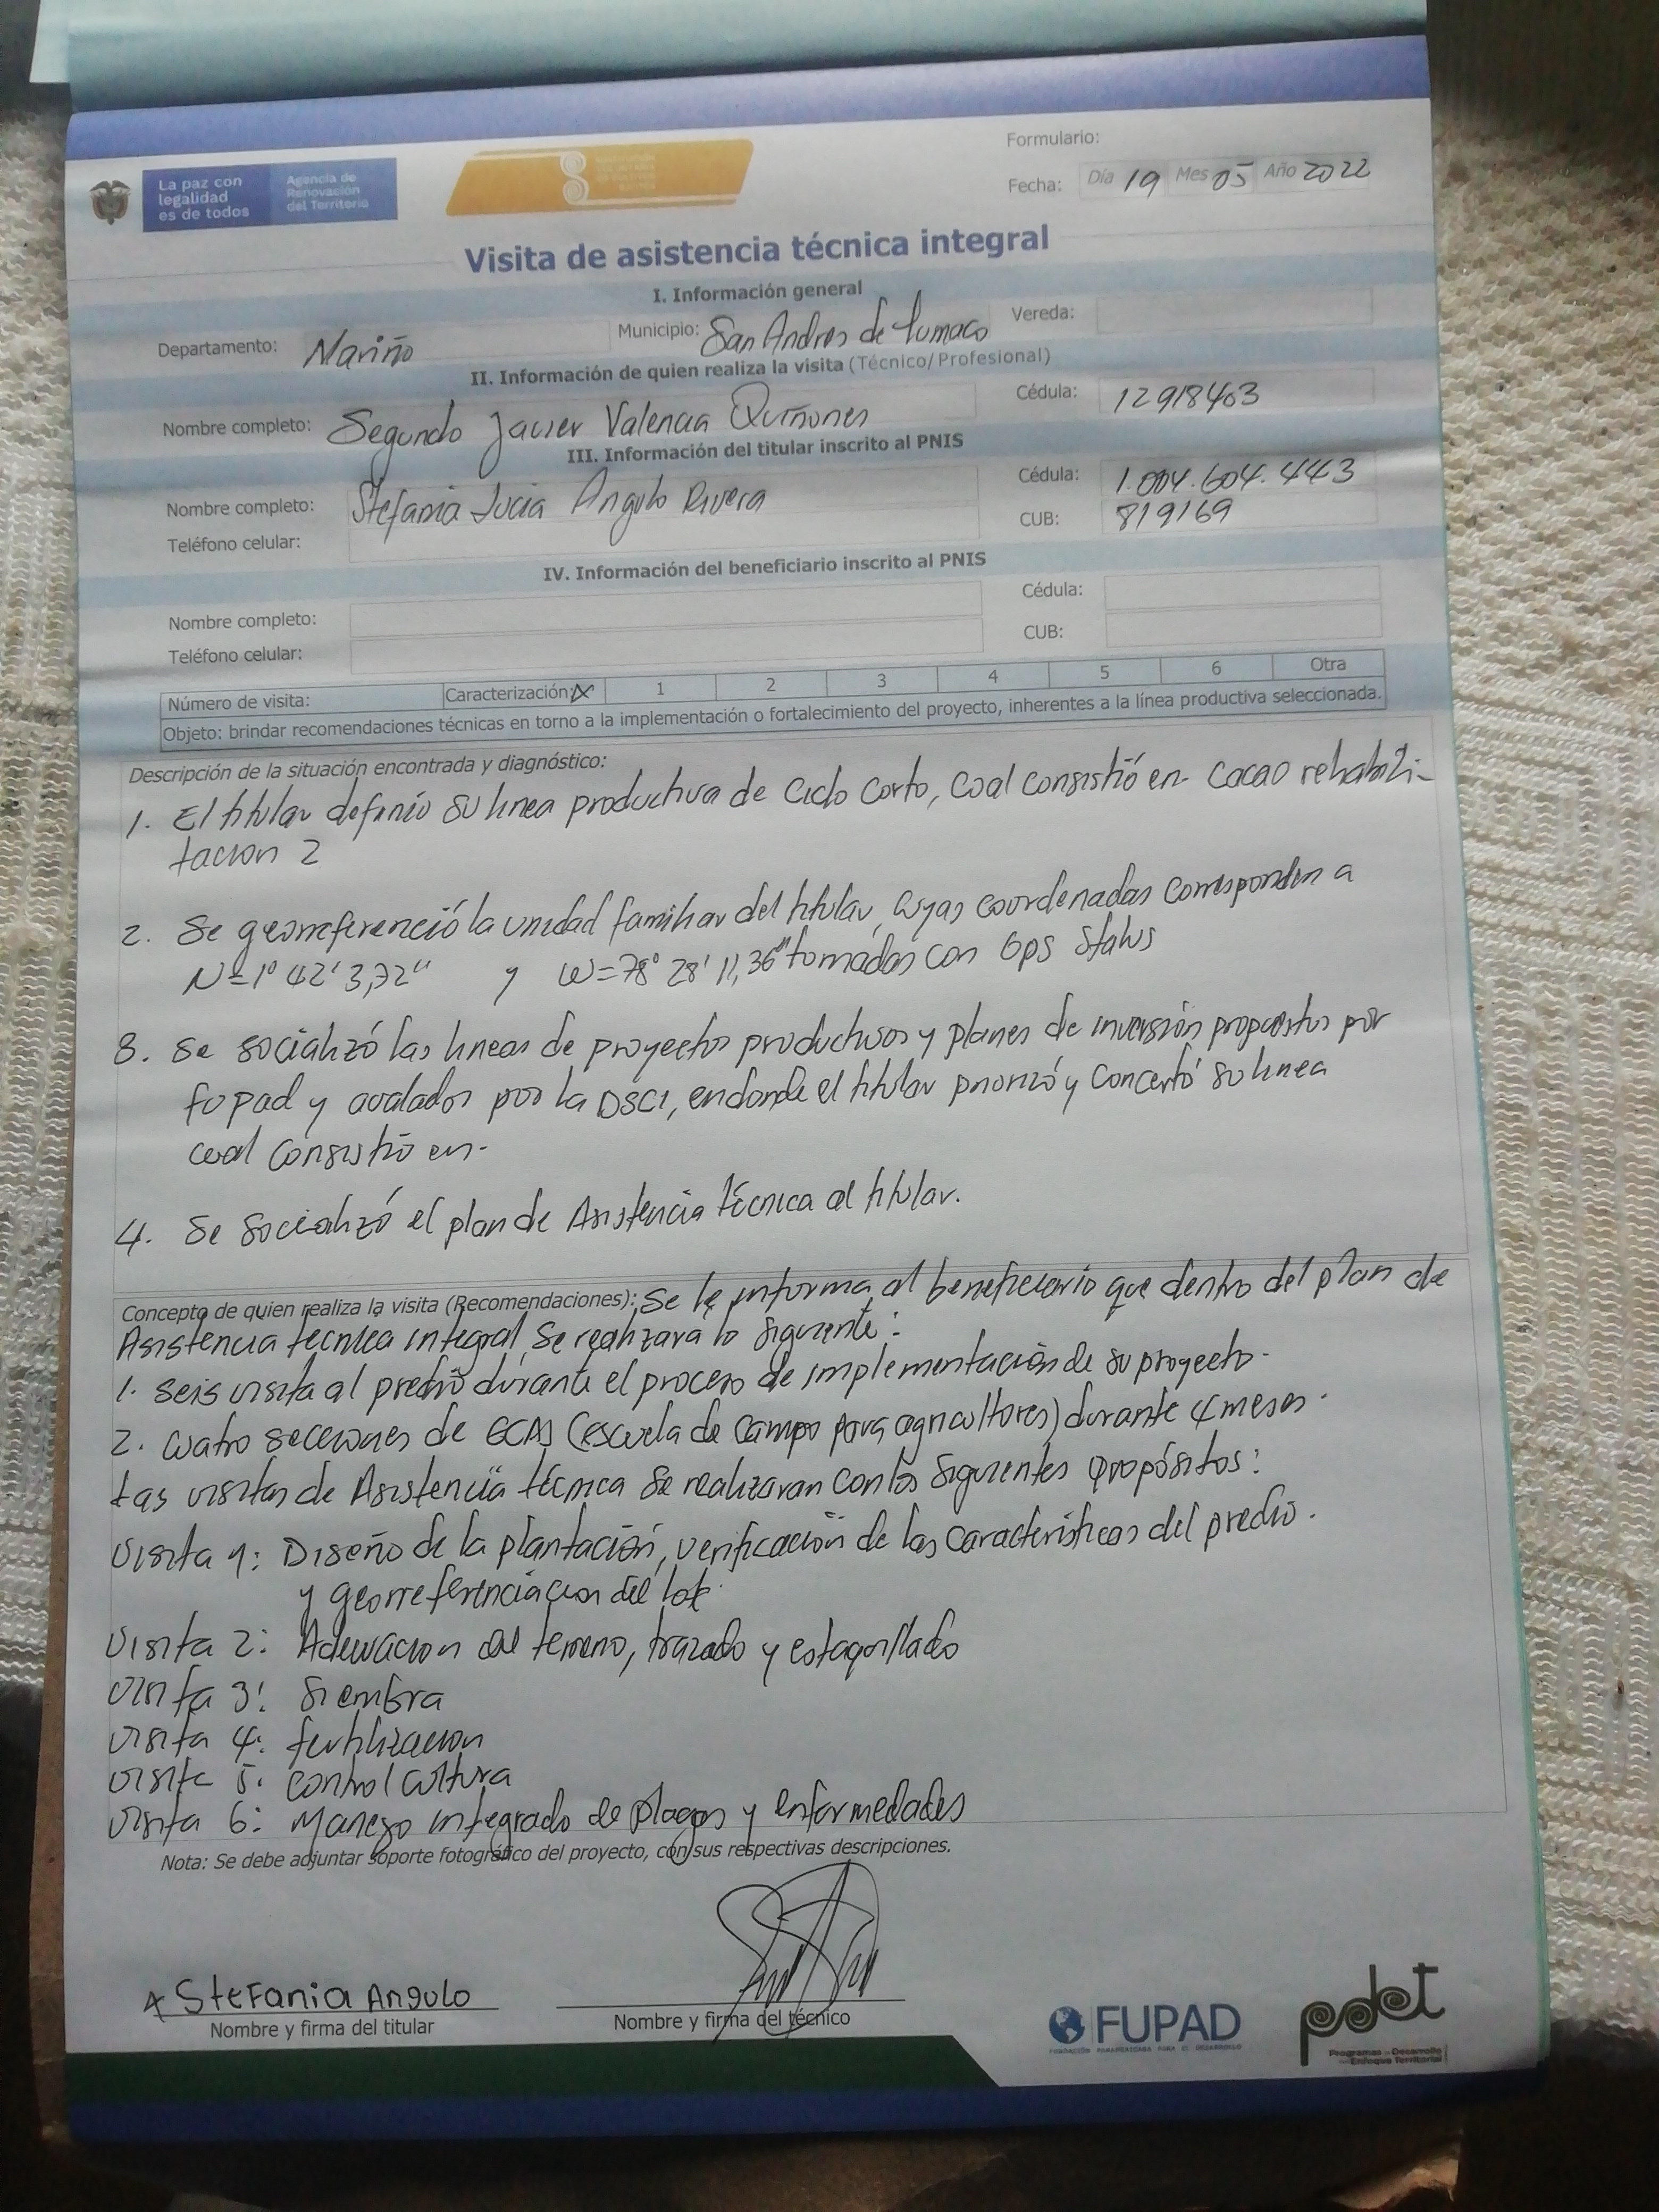 Formulario:
La paz con legalidad es de todos
Agencia de Renovación del Territorio
Fecha: Día 19 Mes 05 Año 2022
Visita de asistencia técnica integral
I. Información general
Departamento: Nariño Municipio: San Andres de Tumaco Vereda:
II. Información de quien realiza la visita (Técnico/Profesional)
Nombre completo: Segundo Javier Valencia Quiñones Cédula: 12918403
III. Información del titular inscrito al PNIS
Nombre completo: Stefania Lucia Angulo Rivera Cédula: 1.004.604.443
Teléfono celular: CUB: 819169
IV. Información del beneficiario inscrito al PNIS
Nombre completo: Cédula:
Teléfono celular: CUB:
Número de visita: Caracterización: X 1 2 3 4 5 6 Otra
Objeto: brindar recomendaciones técnicas en torno a la implementación o fortalecimiento del proyecto, inherentes a la línea productiva seleccionada.
Descripción de la situación encontrada y diagnóstico:
1. El titular definio su linea productiva de Ciclo Corto, Cual consistió en- Cacao rehabili-
tacion 2
2. Se georreferenció la unidad familiar del titular, cuyas coordenadas corresponden a
N=1° 42' 3,72" y W=78° 28' 11,36" tomadas con Gps Status
3. Se socializó las lineas de proyectos productivos y planes de inversión propuestos por
fupad y avalados por la DSCI, en donde el titular priorizó y concertó su linea
cual consistió en-
4. Se Socializó el plan de Asistencia técnica al titular.
Concepto de quien realiza la visita (Recomendaciones): Se le informa al beneficiario que dentro del plan de
Asistencia técnica integral, se realizara lo siguiente:
1. seis visita al predio durante el proceso de implementación de su proyecto-
2. Cuatro secciones de ECAS (escuela de campo para agricultores) durante 4 meses.
Las visitas de Asistencia técnica se realizaran con los siguientes propósitos:
Visita 1: Diseño de la plantación, verificación de las características del predio.
y georreferenciacion del lote.
Visita 2: Adecuacion del terreno, trazado y estaquillado
Visita 3: Siembra
Visita 4: fertilizacion
Visita 5: control cultura
Visita 6: Manejo integrado de plagas y enfermedades
Nota: Se debe adjuntar soporte fotográfico del proyecto, con sus respectivas descripciones.
x Stefania Angulo
Nombre y firma del titular Nombre y firma del técnico
FUPAD
FUNDACIÓN PANAMERICANA PARA EL DESARROLLO
pdet
Programas de Desarrollo con Enfoque Territorial